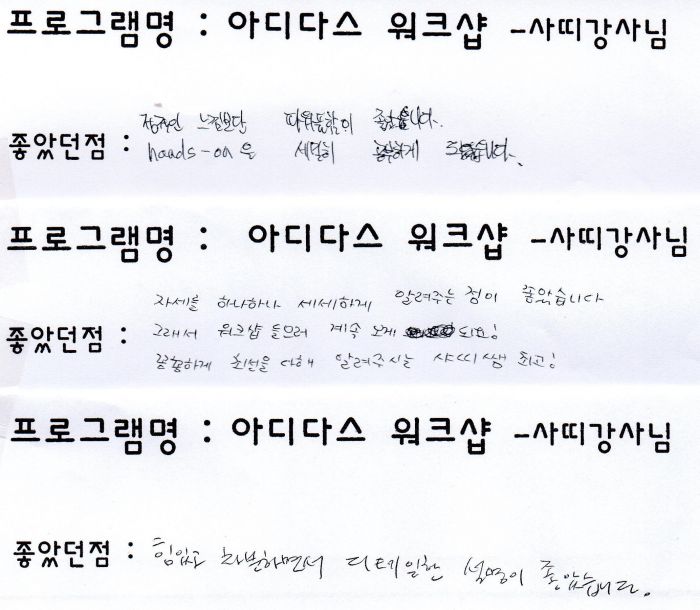 프로그램명 : 아디다스 워크샵 -사띠강사님
좋았던점 :
느낌보단 파워풀함이 좋았습니다.
hands-on을 세밀히
프로그램명 : 아디다스 워크샵 -사띠강사님
좋았던점 :
자세를 하나하나 세세하게 알려주는 점이 좋았습니다
그래서 워크샵 들으러 계속 오게 되요!
꼼꼼하게 최선을 다해 알려주시는 샤띠쌤 최고!
프로그램명 : 아디다스 워크샵 -사띠강사님
좋았던점 : 힘있고 차분하면서 디테일한 설명이 좋았습니다.